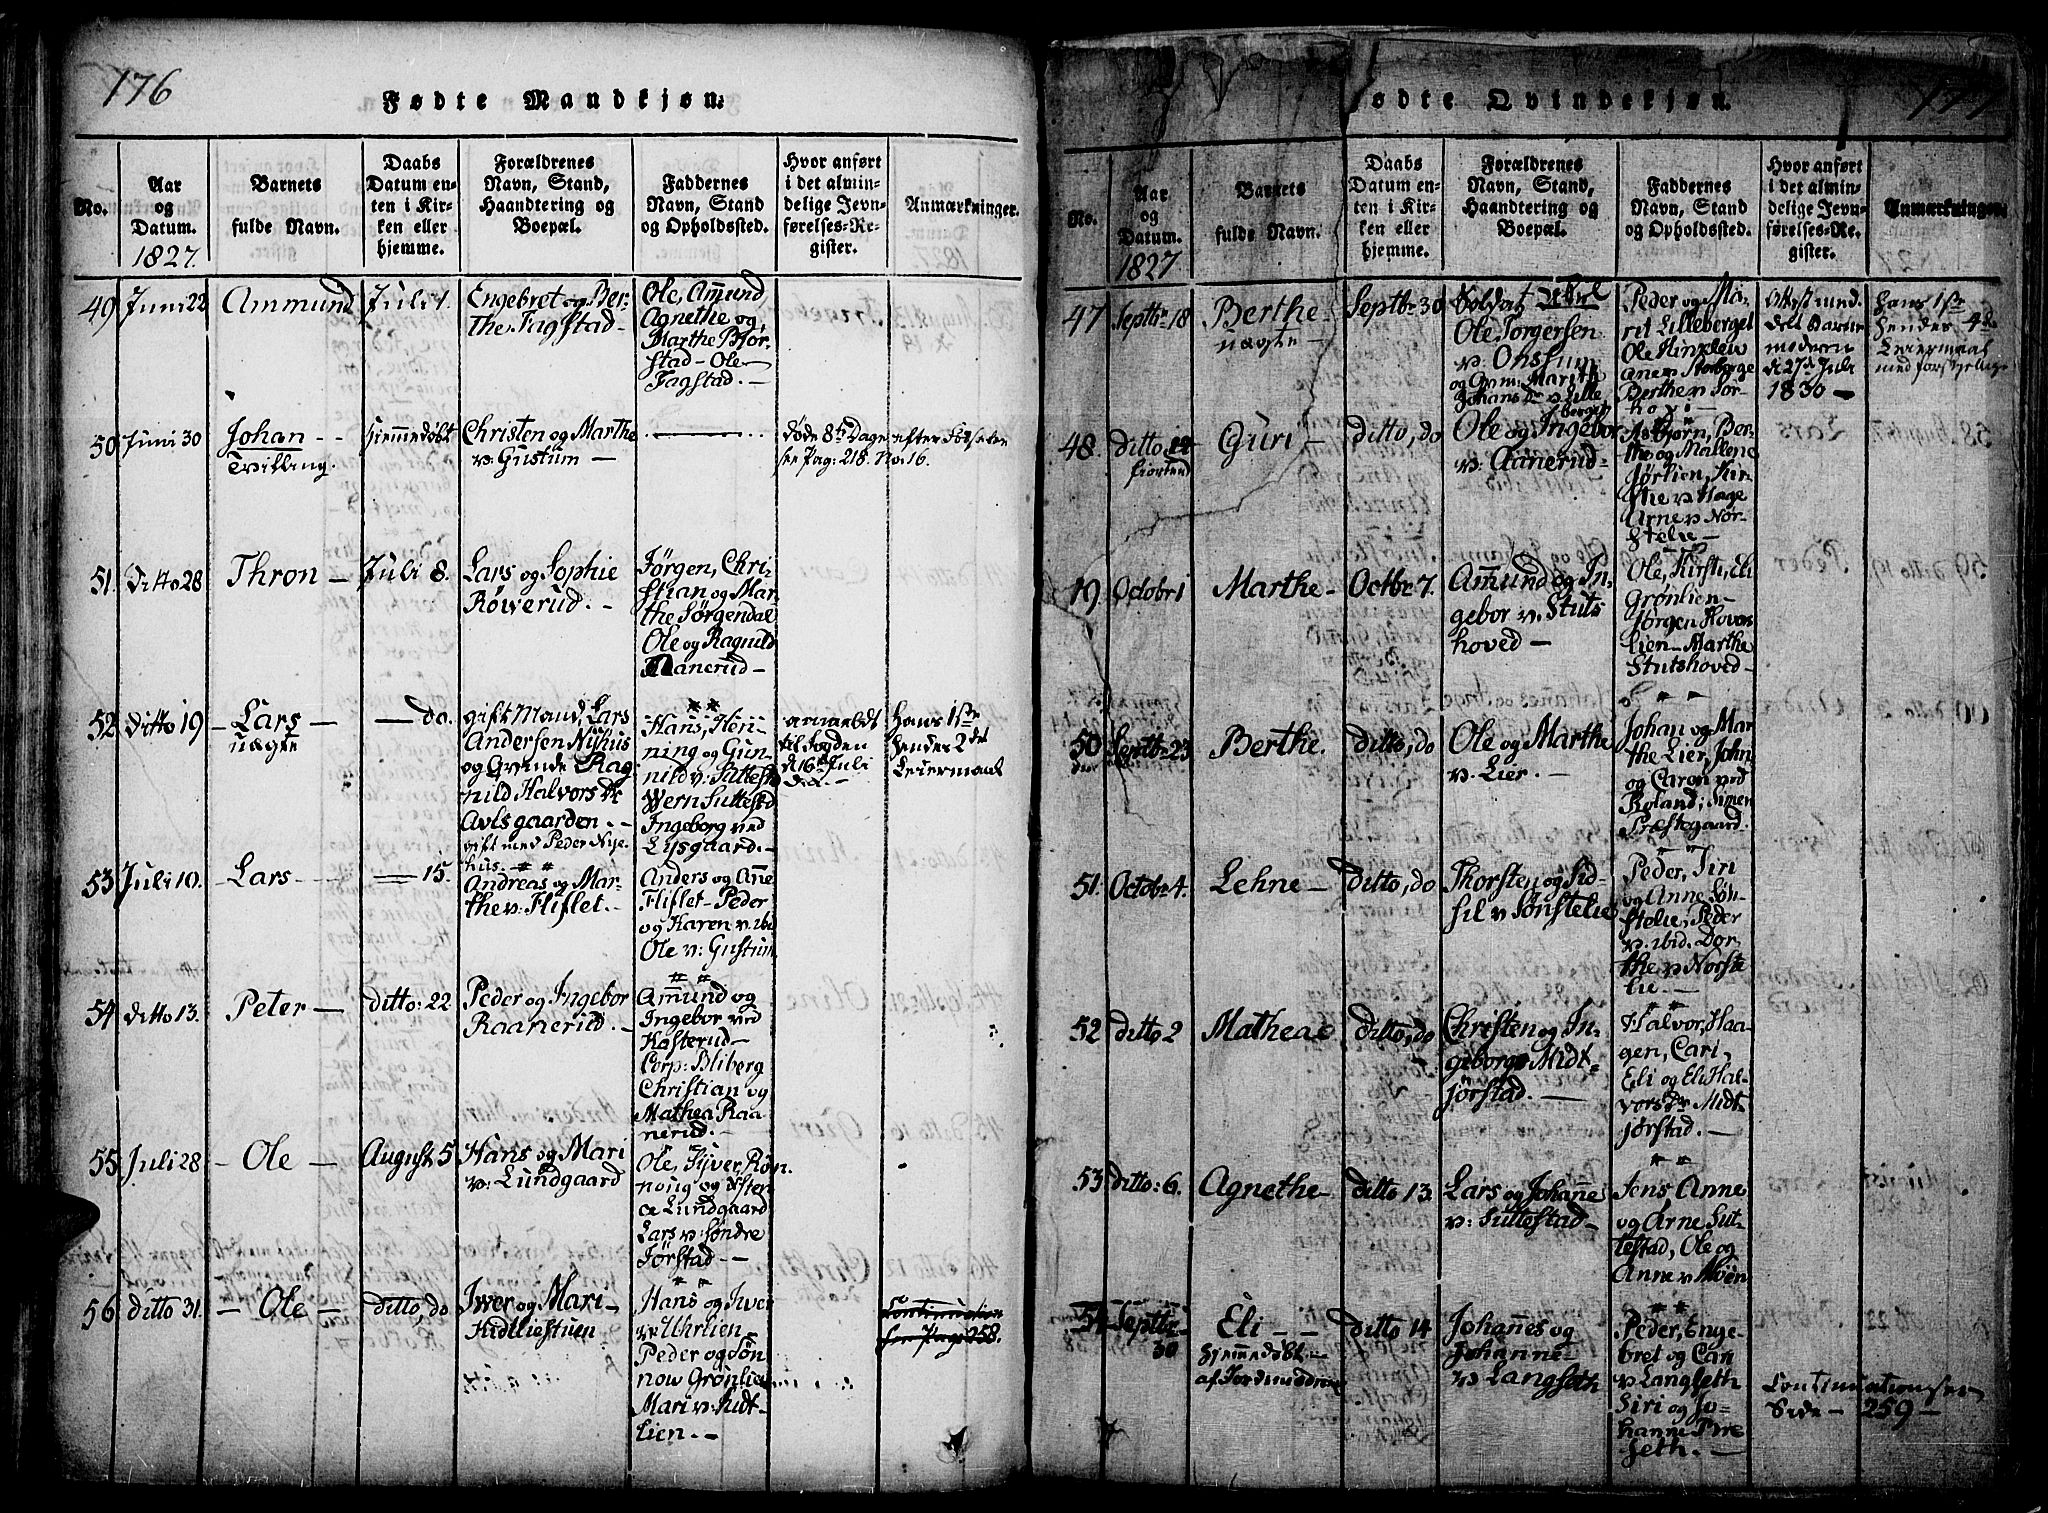 176
Fødte Mandkjøn.
No.
Aar
og
Datum.
1827.
Barnets
fulde Navn.
Daabs
Datum en-
ten i Kir-
ken eller
hjemme.
Forældrenes
Navn, Stand,
Haandtering og
Boepæl.
Faddernes
Navn, Stand
og Opholdssted.
Hvor anført
i det almin-
delige Jevn-
førelses-Re-
gister.
Anmærkninger.
49
Juni 22
Ammund
Juli 1.
Engebret og Ber-
the Fagstad -
Ole, Amund
Agnethe og
Marthe Bjør-
stad - Ole
Fagstad. -
50
Juni 30
Johan - -
Tvilling.
hjemmedøbt
Christen og Marthe
v: Gustum -
døde 8te Dage
see Pag: 218. No: 16.
efter Fødselen
51.
Ditto 28
Thron -
Juli 8.
Lars og Sophie
Røiverud. -
Jørgen, Chri-
stian og Mar-
the Sørgendal
Ole og Ragnild
Aanerud -
52
Ditto 19
- Lars -
uægte
- do.
gift Mand, Lars
Andersen Nyhus
og Qvinde Rag
nild Halvors Dr
Avlsgaarden. -
gift med Peder Nye-
hus. -
Hans, Hen-
ning og Gun-
nild v: Suttestd
Wern Suttestd
Ingeborg ved
Lysgaard. -
anmeldt
til Fogden
d 16de Juli
Hans 1ste
hendes 2det
Leiermaal
53
Juli 10.
- Lars -
- 15.
Andreas og Mar-
the v: Fliflet. -
Anders og Ane
Fliflet - Peder
og Karen v. ibd
Ole v: Gustum
54
ditto 13.
Peter -
ditto: 22
Peder og Ingebor
Raanerud. -
Amund og
Ingebor ved
Kosterud -
Corp: Bliberg
Christian og
Mathea Raa-
nerud. -
55
Juli 28
- Ole -
August 5
Hans og Mari
v: Lundgaard
Ole, Syver Røn.
noug og
Lundgaard
Lars v: Søndre
Jørstad -
56
ditto 31.
- Ole -
ditto, do
Iwer og Mari -
Kidtliestuen
Hans og Iwer
v: Uhrlien
Peder og Søn
now Grønlien
Mari v: Kidt-
lien. -
Continuation
see Pag: 258.
177
Fødte Qvindekjøn.
No.
Aar
og
Datum.
1827
Barnets
fulde Navn.
Daabs
Datum en-
ten i Kir-
ken eller
hjemme.
Forældrenes
Navn, Stand,
Haandtering og
Boepæl.
Faddernes
Navn, Stand
og Opholdssted.
Hvor anført
i det almin-
delige Jevn-
førelses-Re-
gister.
Anmærkninger.
47
Septbr 18
Berthe -
uægte -
Septbr 30
Soldat
Ole Torgersen
v: Onsum
og Qvm: Marith
Johans Dr v: Lille
berget
Peder og Ma-
rit Lilleberget
Ole
Ane v Storberge
Berthe v Jør-
Attest med
delt
moderen
d 27de Juli
1830 -
Hans 1ste
Hendes 4de
Leiermaal
48.
ditto 14
fiorten
Guri -
ditto, do
Ole og Ingebor
v: Aanerud -
Asbjørn, Ber-
the og Mallene
Jørlien, Kir-
stie v Hage
Arne v Nør-
stelie -
19.
Octobr 1
Marthe -
Octbr 7.
Amund og In-
gebor v. Stuts
hoved -
Ole, Kirsti, Eli
Grønlien -
Jørgen Hovos
lien - Marthe
Stutshoved -
50
Septbr 23
Berthe.
ditto, do
Ole og Marthe
v. Lier. -
Johan og Mar-
the Lier, John
og Caren ved
Roland; Simen
Præstegaard.
51.
Octobr 4.
Lehne -
ditto, do
Thorsten og Sid-
sil v Sønstelie
Peder, Siri
og Anne Søn-
stelie, Peder
v. ibid. Dor-
the v Norste
lie -
52
ditto 2
Matheae
ditto, do
Christen og In-
geborg v Midt
jørstad. -
Halvor, Haa-
gen, Cari,
Eli og Eli Hal-
vors Dr Midt
jørstad. -
53
ditto: 6.
Agnethe -
ditto 13.
Lars og Johanne
v: Suttestad -
Jens, Anne
og Arne Sut-
testad, Ole og
Anne v Moen
54
Septbr
30
Eli - -
hjemmedøbt -
af Jordmoderen
ditto 14
Johannes og
Johanne -
v: Langseth
Peder, Enge-
bret og Cari
v Langseth
Siri og Jo-
hanne Bræ
seth. -
Continuationsen
Side - 259 -